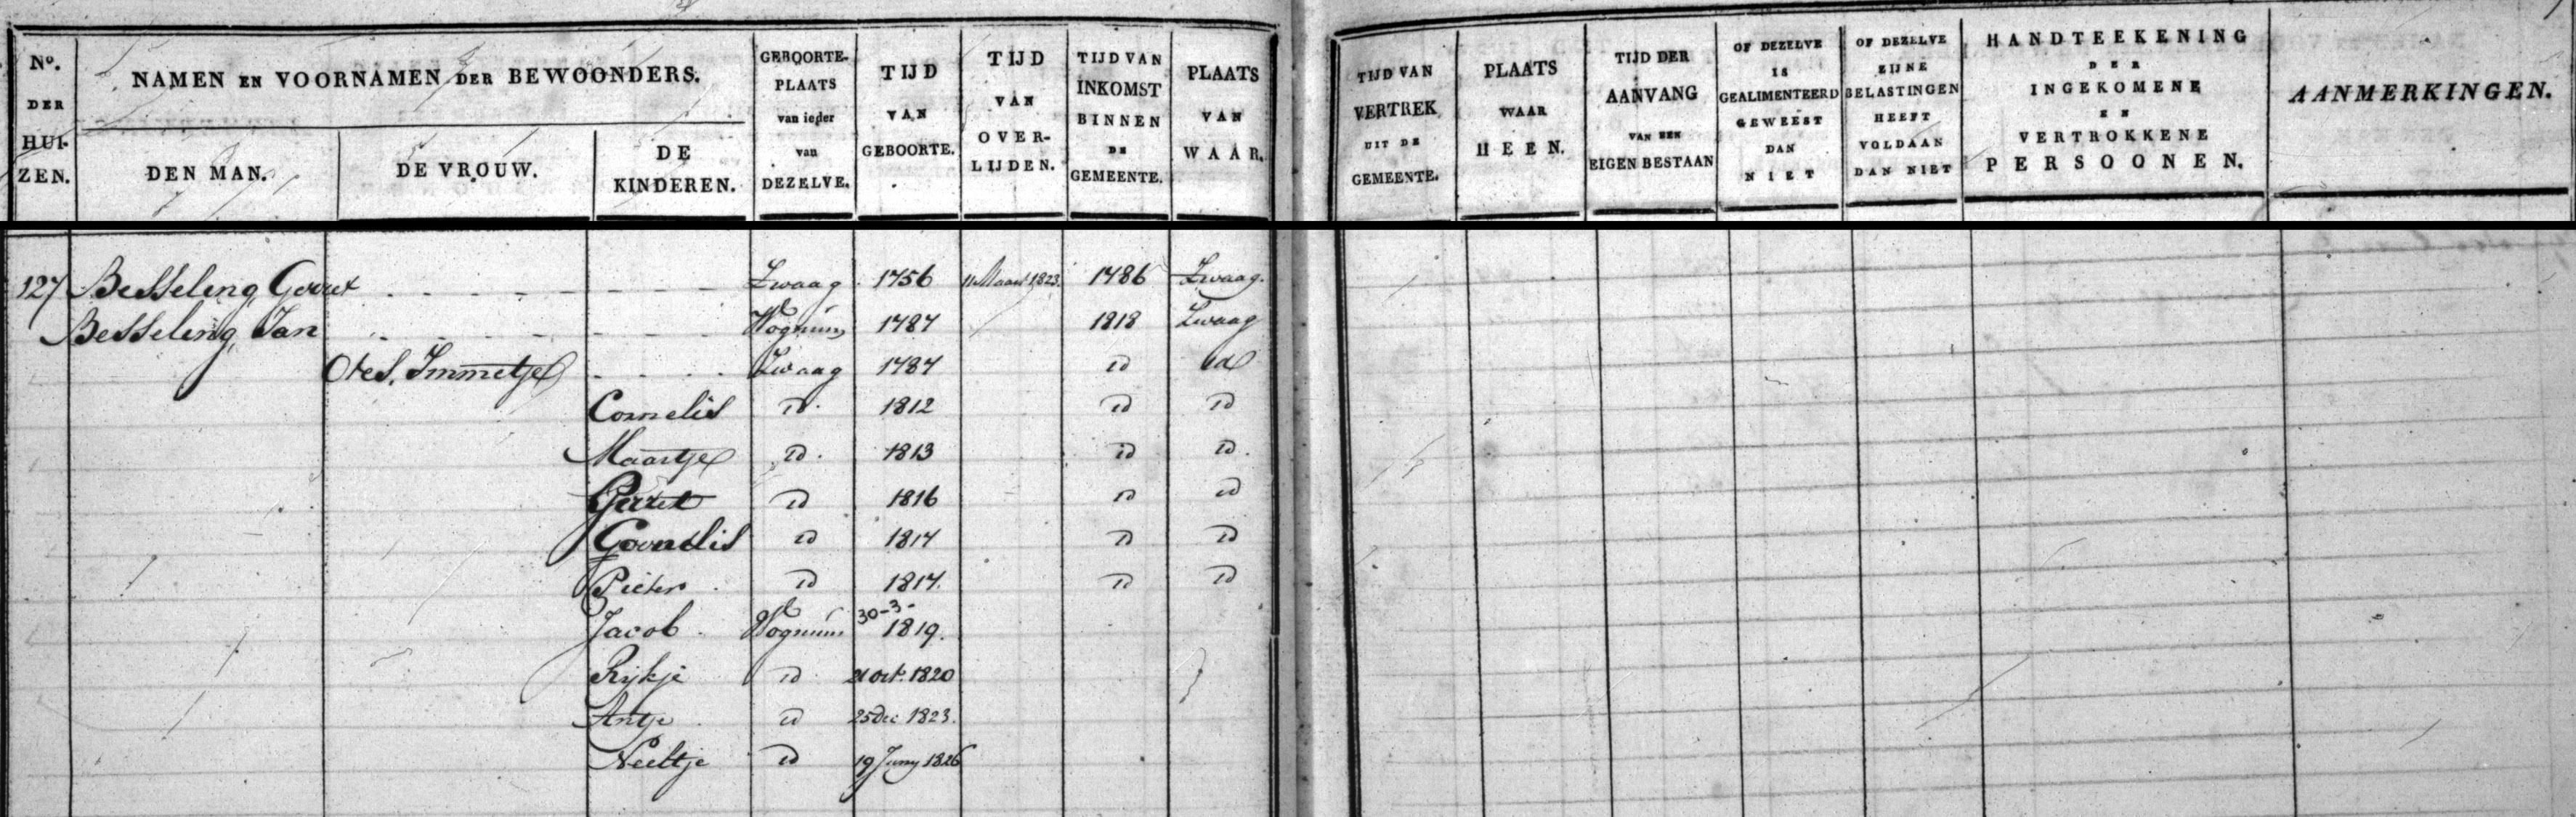 No. DER HUI- ZEN.
NAMEN EN VOORNAMEN DER BEWOONDERS.
DEN MAN.
DE VROUW.
DE KINDEREN.
GEBOORTE- PLAATS van ieder van DEZELVE.
TIJD VAN GEBOORTE.
TIJD VAN OVER- LIJDEN.
TIJD VAN INKOMST BINNEN DE GEMEENTE.
PLAATS VAN WAAR.
TIJD VAN VERTREK UIT DE GEMEENTE.
PLAATS WAAR HEEN.
TIJD DER AANVANG VAN EEN EIGEN BESTAAN
OF DEZELVE IS GEALIMENTEERD GEWEEST DAN NIET
OF DEZELVE ZIJNE BELASTINGEN HEEFT VOLDAAN DAN NIET
HANDTEEKENING DER INGEKOMENE EN VERTROKKENE PERSOONEN.
AANMERKINGEN.
127 Besseling, Gerret Zwaag 1756 11 Maart 1823. 1786 Zwaag.
Besseling, Jan Wognum 1787 1818 Zwaag
Otes, Immetje Zwaag 1787 id id
Cornelis id. 1812 id id
Maartje id. 1813 id id.
Gerret id 1816 id id
id 1817 id id
Pieter. id 1817. id id
Jacob. Wognum 30-3-1819.
Rijkje id 21 oct. 1820
Antje. id 25 Dec 1823.
Neeltje id 19 Juny 1826